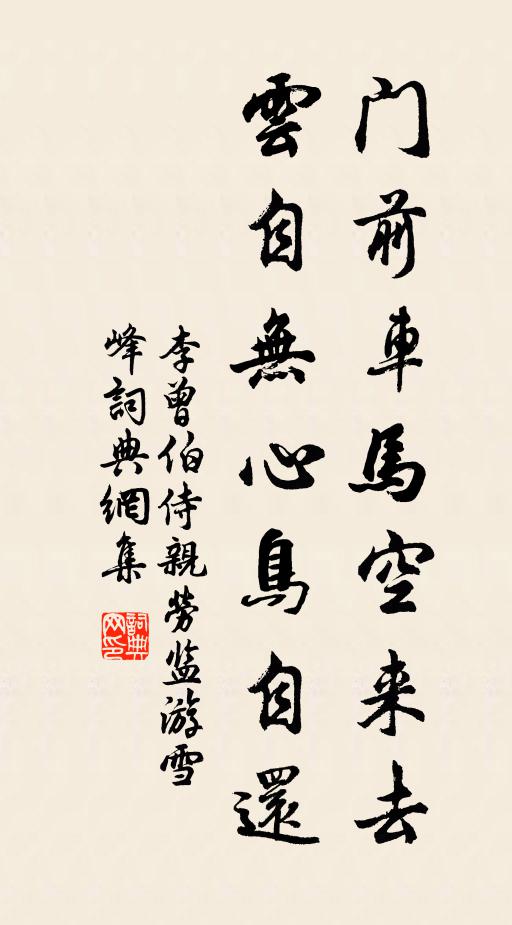 门前車馬空来去
雲自無心鳥自還
李曾伯侍親勞监游雪
峰詞典網集
詞典网印